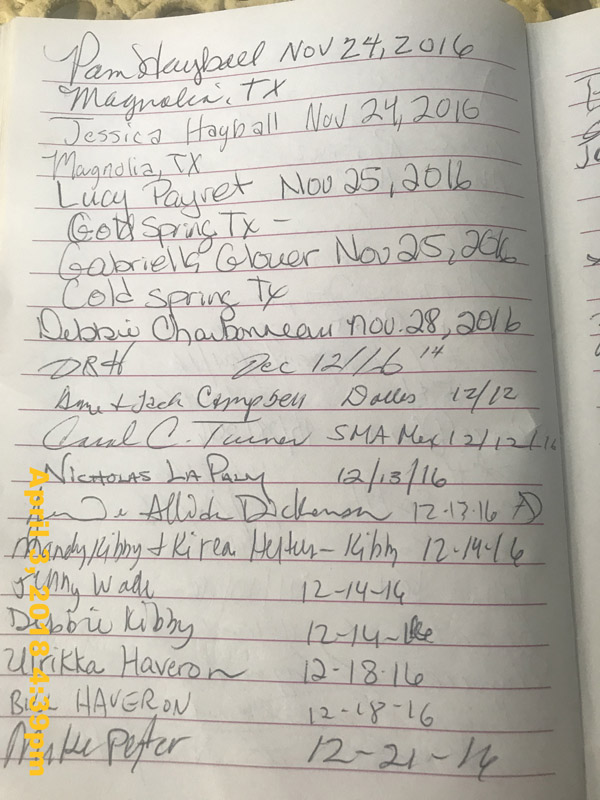 Pam Hayball Nov 24, 2016
Magnolia, TX
Jessica Hayball Nov 24, 2016
Magnolia, TX
Lucy Payret Nov 25, 2016
Cold Spring Tx -
Gabriella Glover Nov 25, 2016
Cold Spring TX
Debbie Charbonneau Nov. 28, 2016
DRH Dec 12/16 14
& Jack Campbell Dallas 12/12
Carol C. Turner SMA Mex 12/12/16
NICHOLAS LA PALY 12/13/16
Dickenson 12-13-16
Mandy Kibby + Kirea - Kibby 12-14-16
Jinny Wade 12-14-16
Debbie Kibby 12-14-16
Ulrikka Haveron 12-18-16
Bill HAVERON 12-18-16
Mike 12-21-16
April 3, 2018 4:39pm